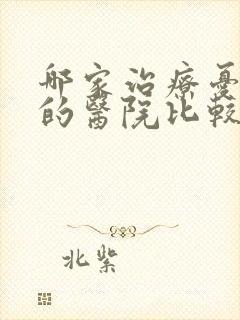 哪家治療憂
的醫院比較
北紫